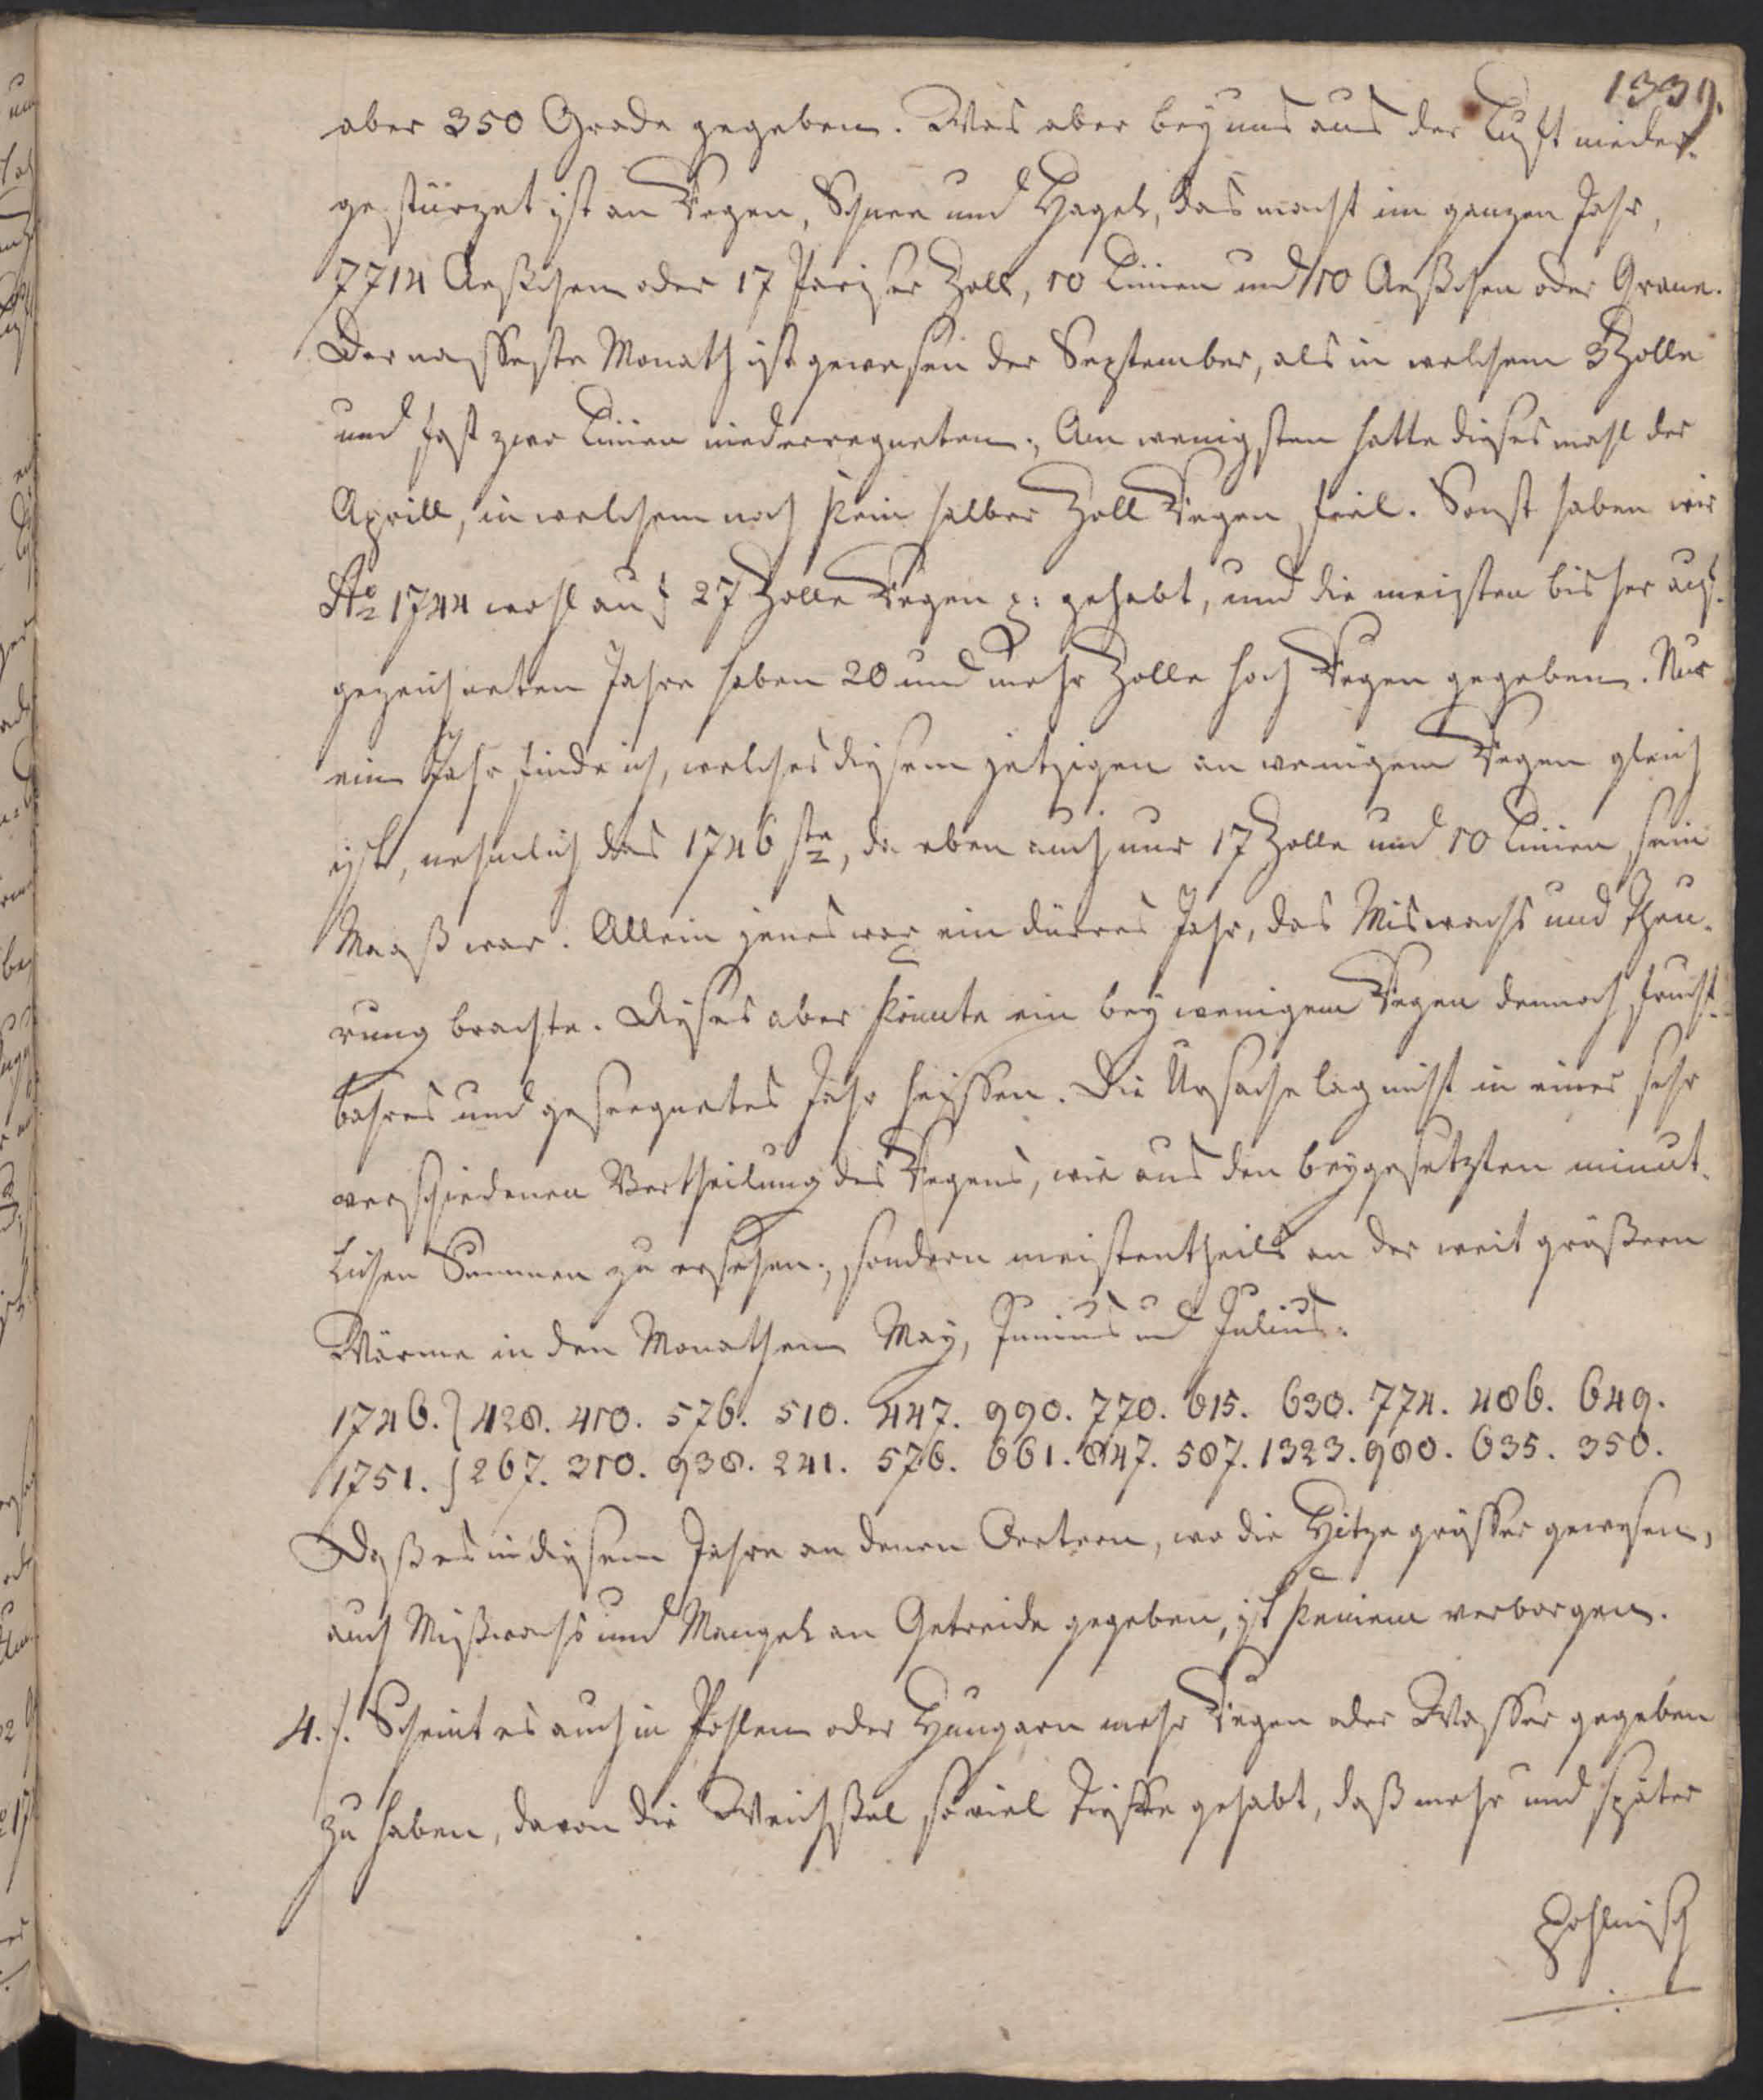 1339.
aber 350 Grade gegeben. Was aber bey uns aus der Luft nieder-
gestürzet ist an Regen, Schnee und Hagel, das macht im ganzen Jahr,
7714 Aeßchen oder 17 Pariser Zoll, 10 Linien und 10 Aeßchen oder Grane.
Der nasseste Monath ist gewesen der September, als in welchem 3 Zolle
und fast zwo Linien niederregneten; Am wenigsten hatte dieses mahl der
Aprill, in welchem noch kein halber Zoll Regen fiel. Sonst haben wir
Ao 1744 wohl auf 27 Zolle Regen p: gehabt, und die meisten bisher auf-
gezeichneten Jahre haben 20 und mehr Zolle hoch Regen gegeben. Nur
ein Jahr finde ich, welches diesem jetzigen an wenigem Regen gleich
ist, nehmlich das 1746ste, da eben auch nur 17 Zolle und 10 Linien sein
Maaß war. Allein jenes war ein dürres Jahr, das Miswachs und Theu-
rung brachte. Dieses aber könnte ein bey wenigem Regen dennoch frucht-
bahres und geseegnetes Jahr heissen. Die Ursache lag nicht in einer sehr
verschiedenen Vertheilung des Regens, wie aus den beygesetzten minut-
lichen Summen zu ersehen; sondern meistentheils an der weit größern
Wärme in den Monathen May, Junius und Julius.
1746. } 428. 410. 576. 510. 447. 990. 770. 615. 630. 774. 486. 649.
1751. } 267. 310. 938. 241. 576. 661. 847. 587. 1323. 980. 635. 350.
Daß es in diesem Jahre an denen Oertern, wo die Hitze grösser gewesen,
auch Mißwachs und Mangel an Getreide gegeben, ist keinem verborgen.
4./. Scheint es auch in Pohlen oder Hungarn mehr Regen oder Wasser gegeben
zu haben, davon die Weichßel so viel Tieffe gehabt, daß mehr und später
Pohlnisch